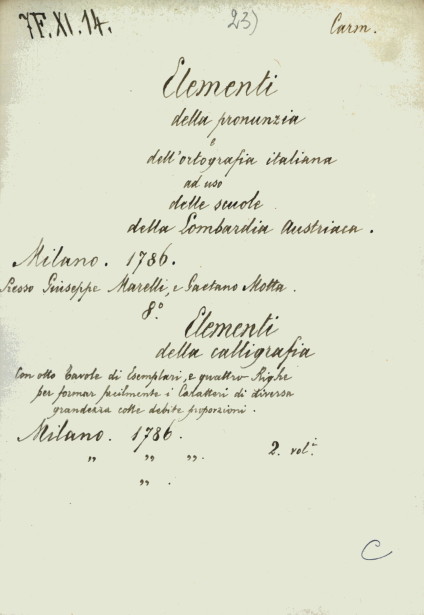 7F.XI.14.
23)
Carm.
Elementi
della pronunzia
e
dell'ortografia italiana
ad uso
delle scuole
della Lombardia Austriaca.
Milano. 1786.
Presso Giuseppe Marelli, e Gaetano Motta.
8.º
Elementi
della calligrafia
Con otto Tavole di Esemplari, e quattro Righe
per formar facilmente i Caratteri di diversa
grandezza colle debite proporzioni.
Milano. 1786.
„ „ „. 2. vol.i
„ .
C